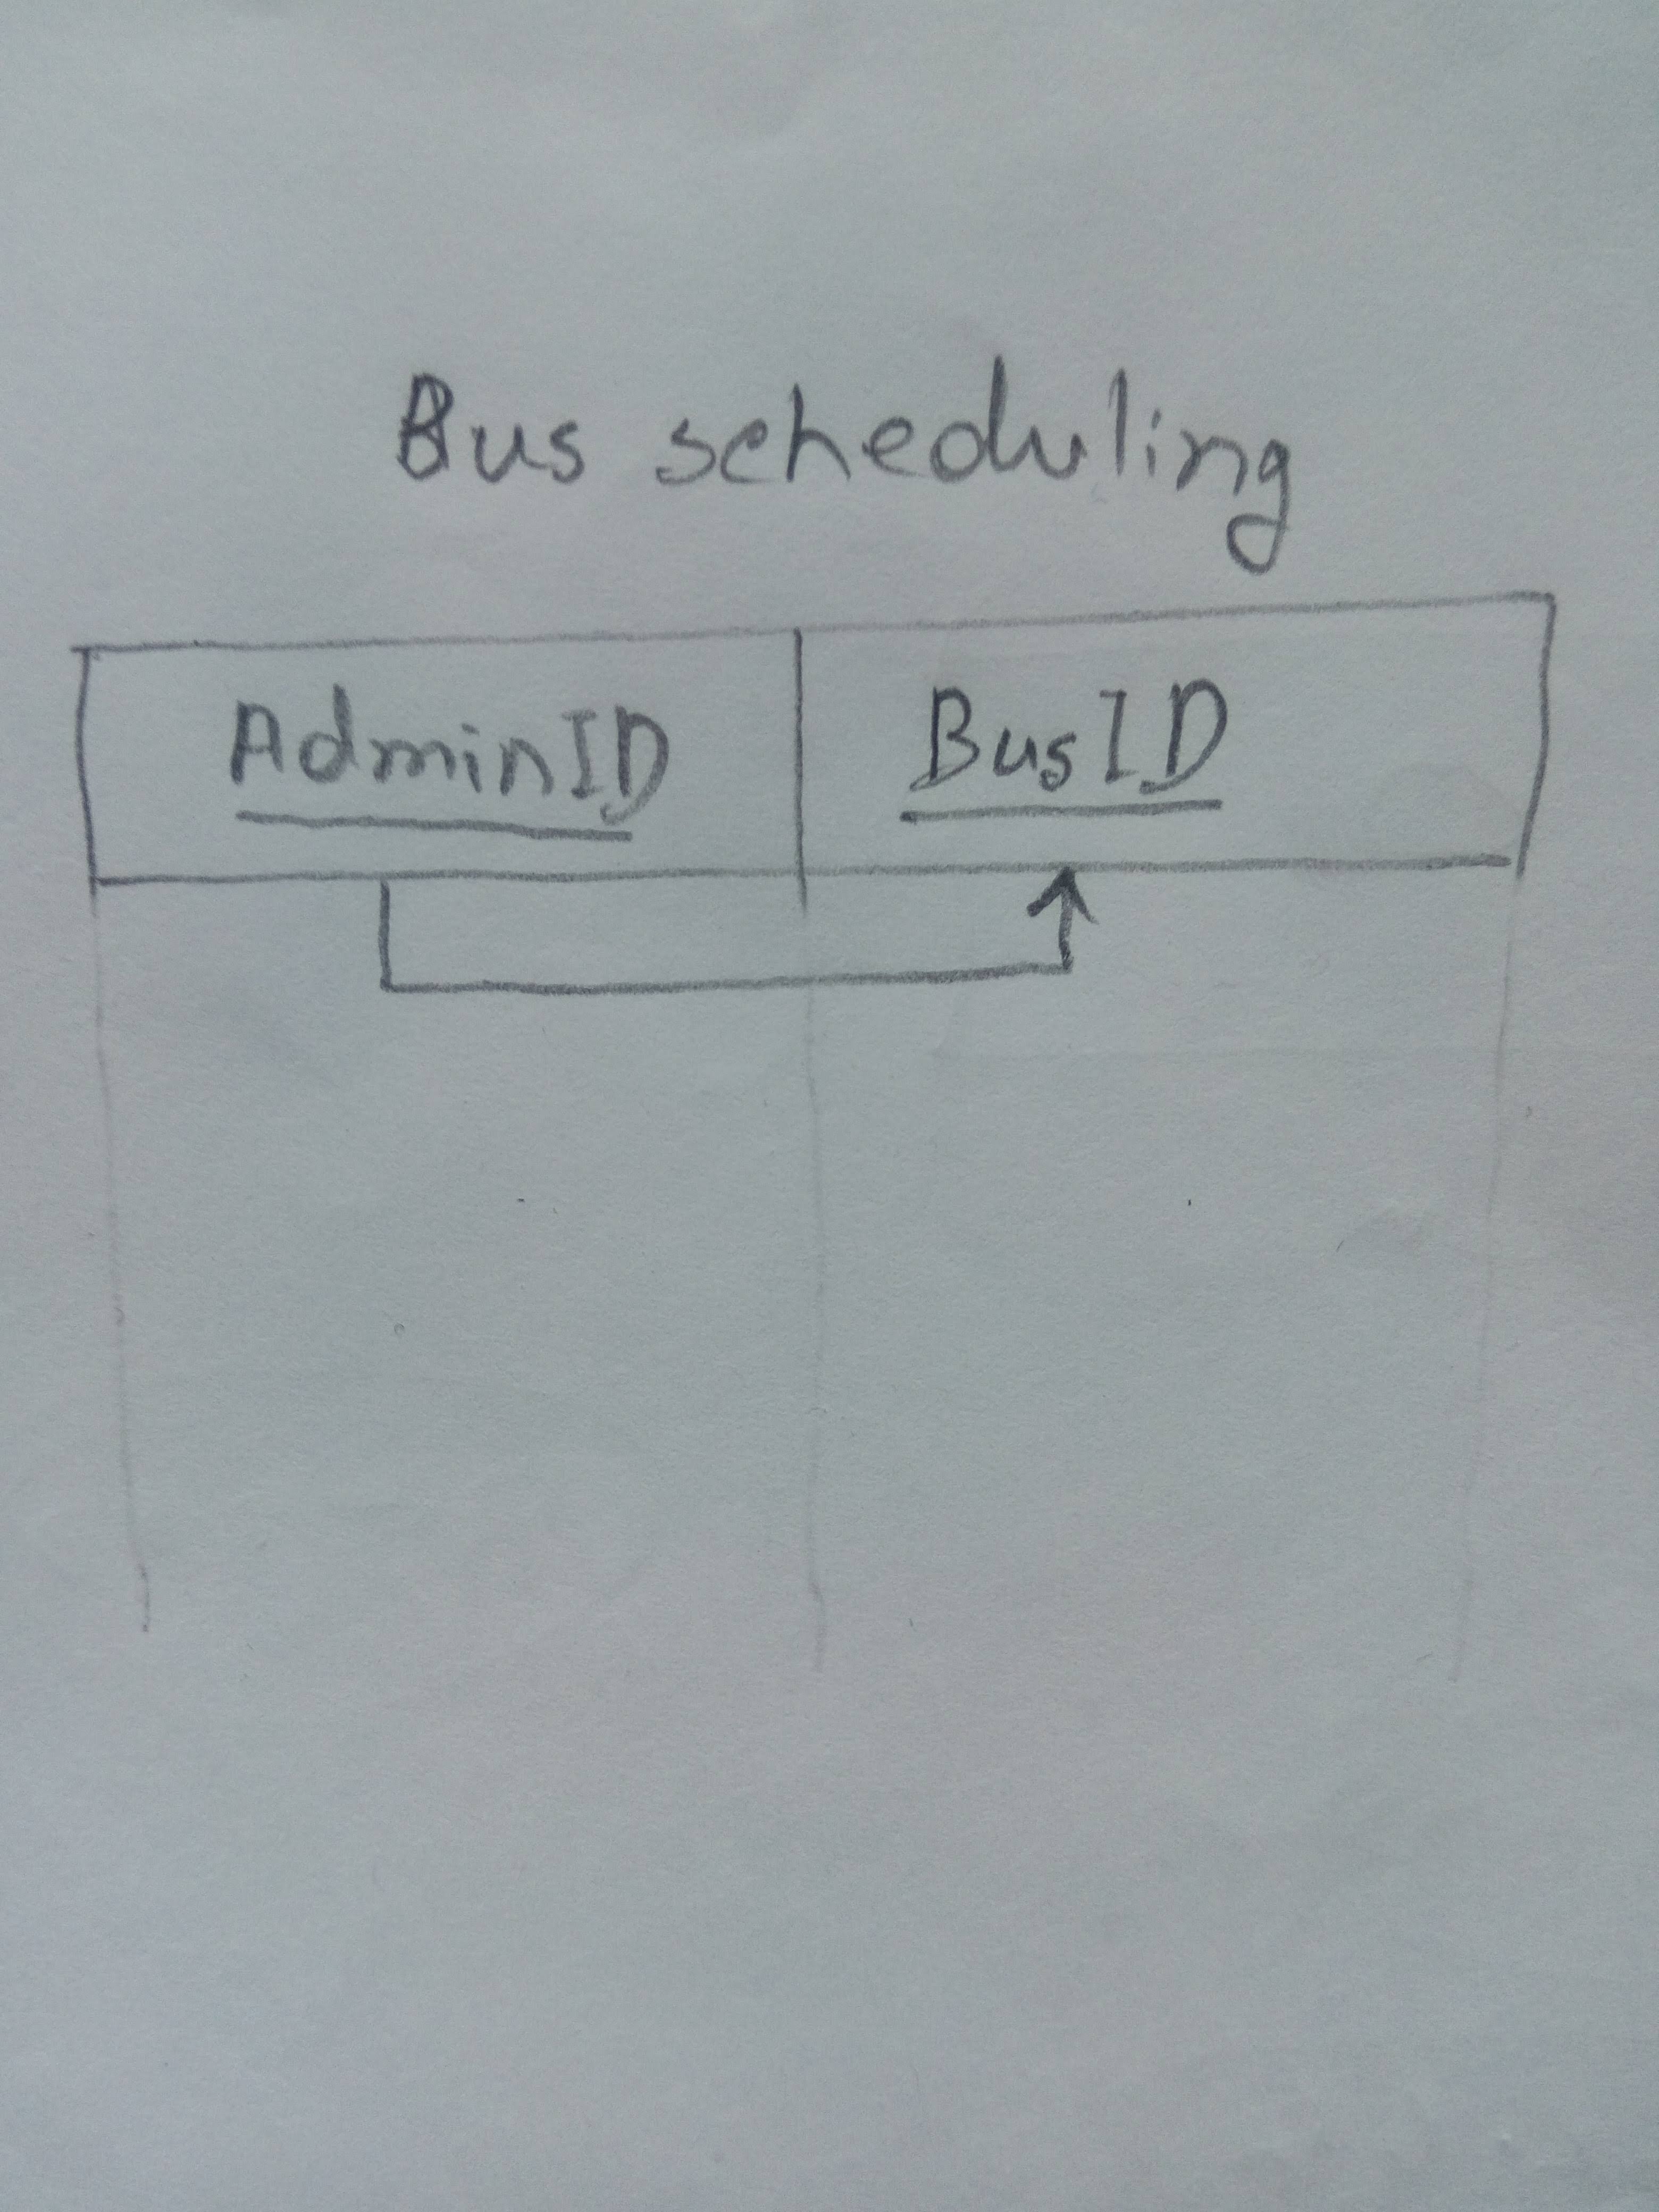 Bus scheduling
AdminID BusID